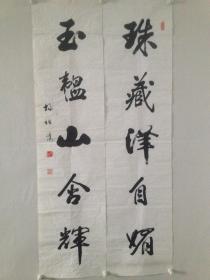 珠藏泽自媚
玉韫山含辉